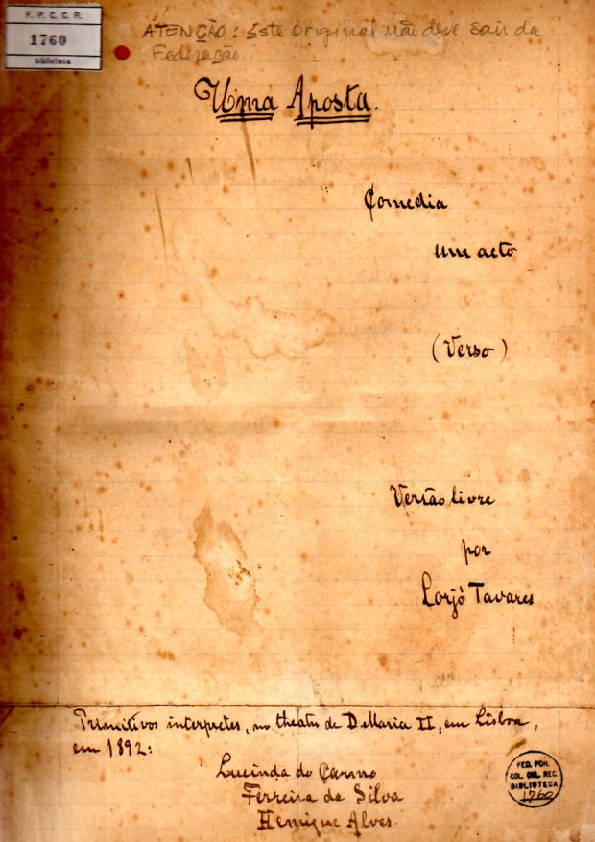 F. P. C. C. R.
1760
biblioteca
ATENÇÃO: Este original não deve sair da
Federação
Uma Aposta.
Comedia
um acto
(Verso)
Versão livre
por
Lorjó Tavares
Primitivos interpretes, no theatro de D. Maria II, em Lisboa,
em 1892:
Lucinda do Carmo
Ferreira da Silva
Henrique Alves.
FED. POR.
COL. CUL. REC.
BIBLIOTECA
1760